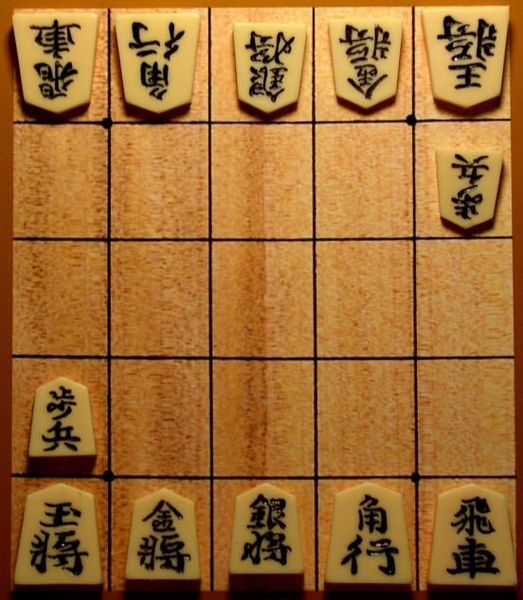 飛車
角行
銀将
金将
王将
歩兵
歩兵
玉将
金将
銀将
角行
飛車